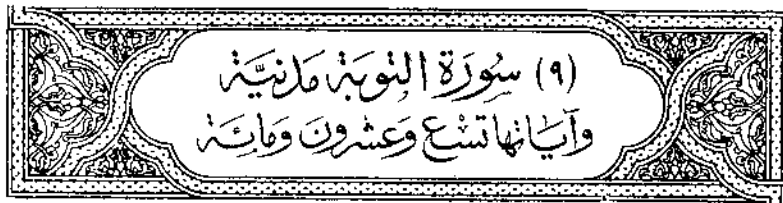 (٩) سُورَة التوبَة مَدنيَّة
وَآيَاتها تسْع وَعشرُون وَمائِة